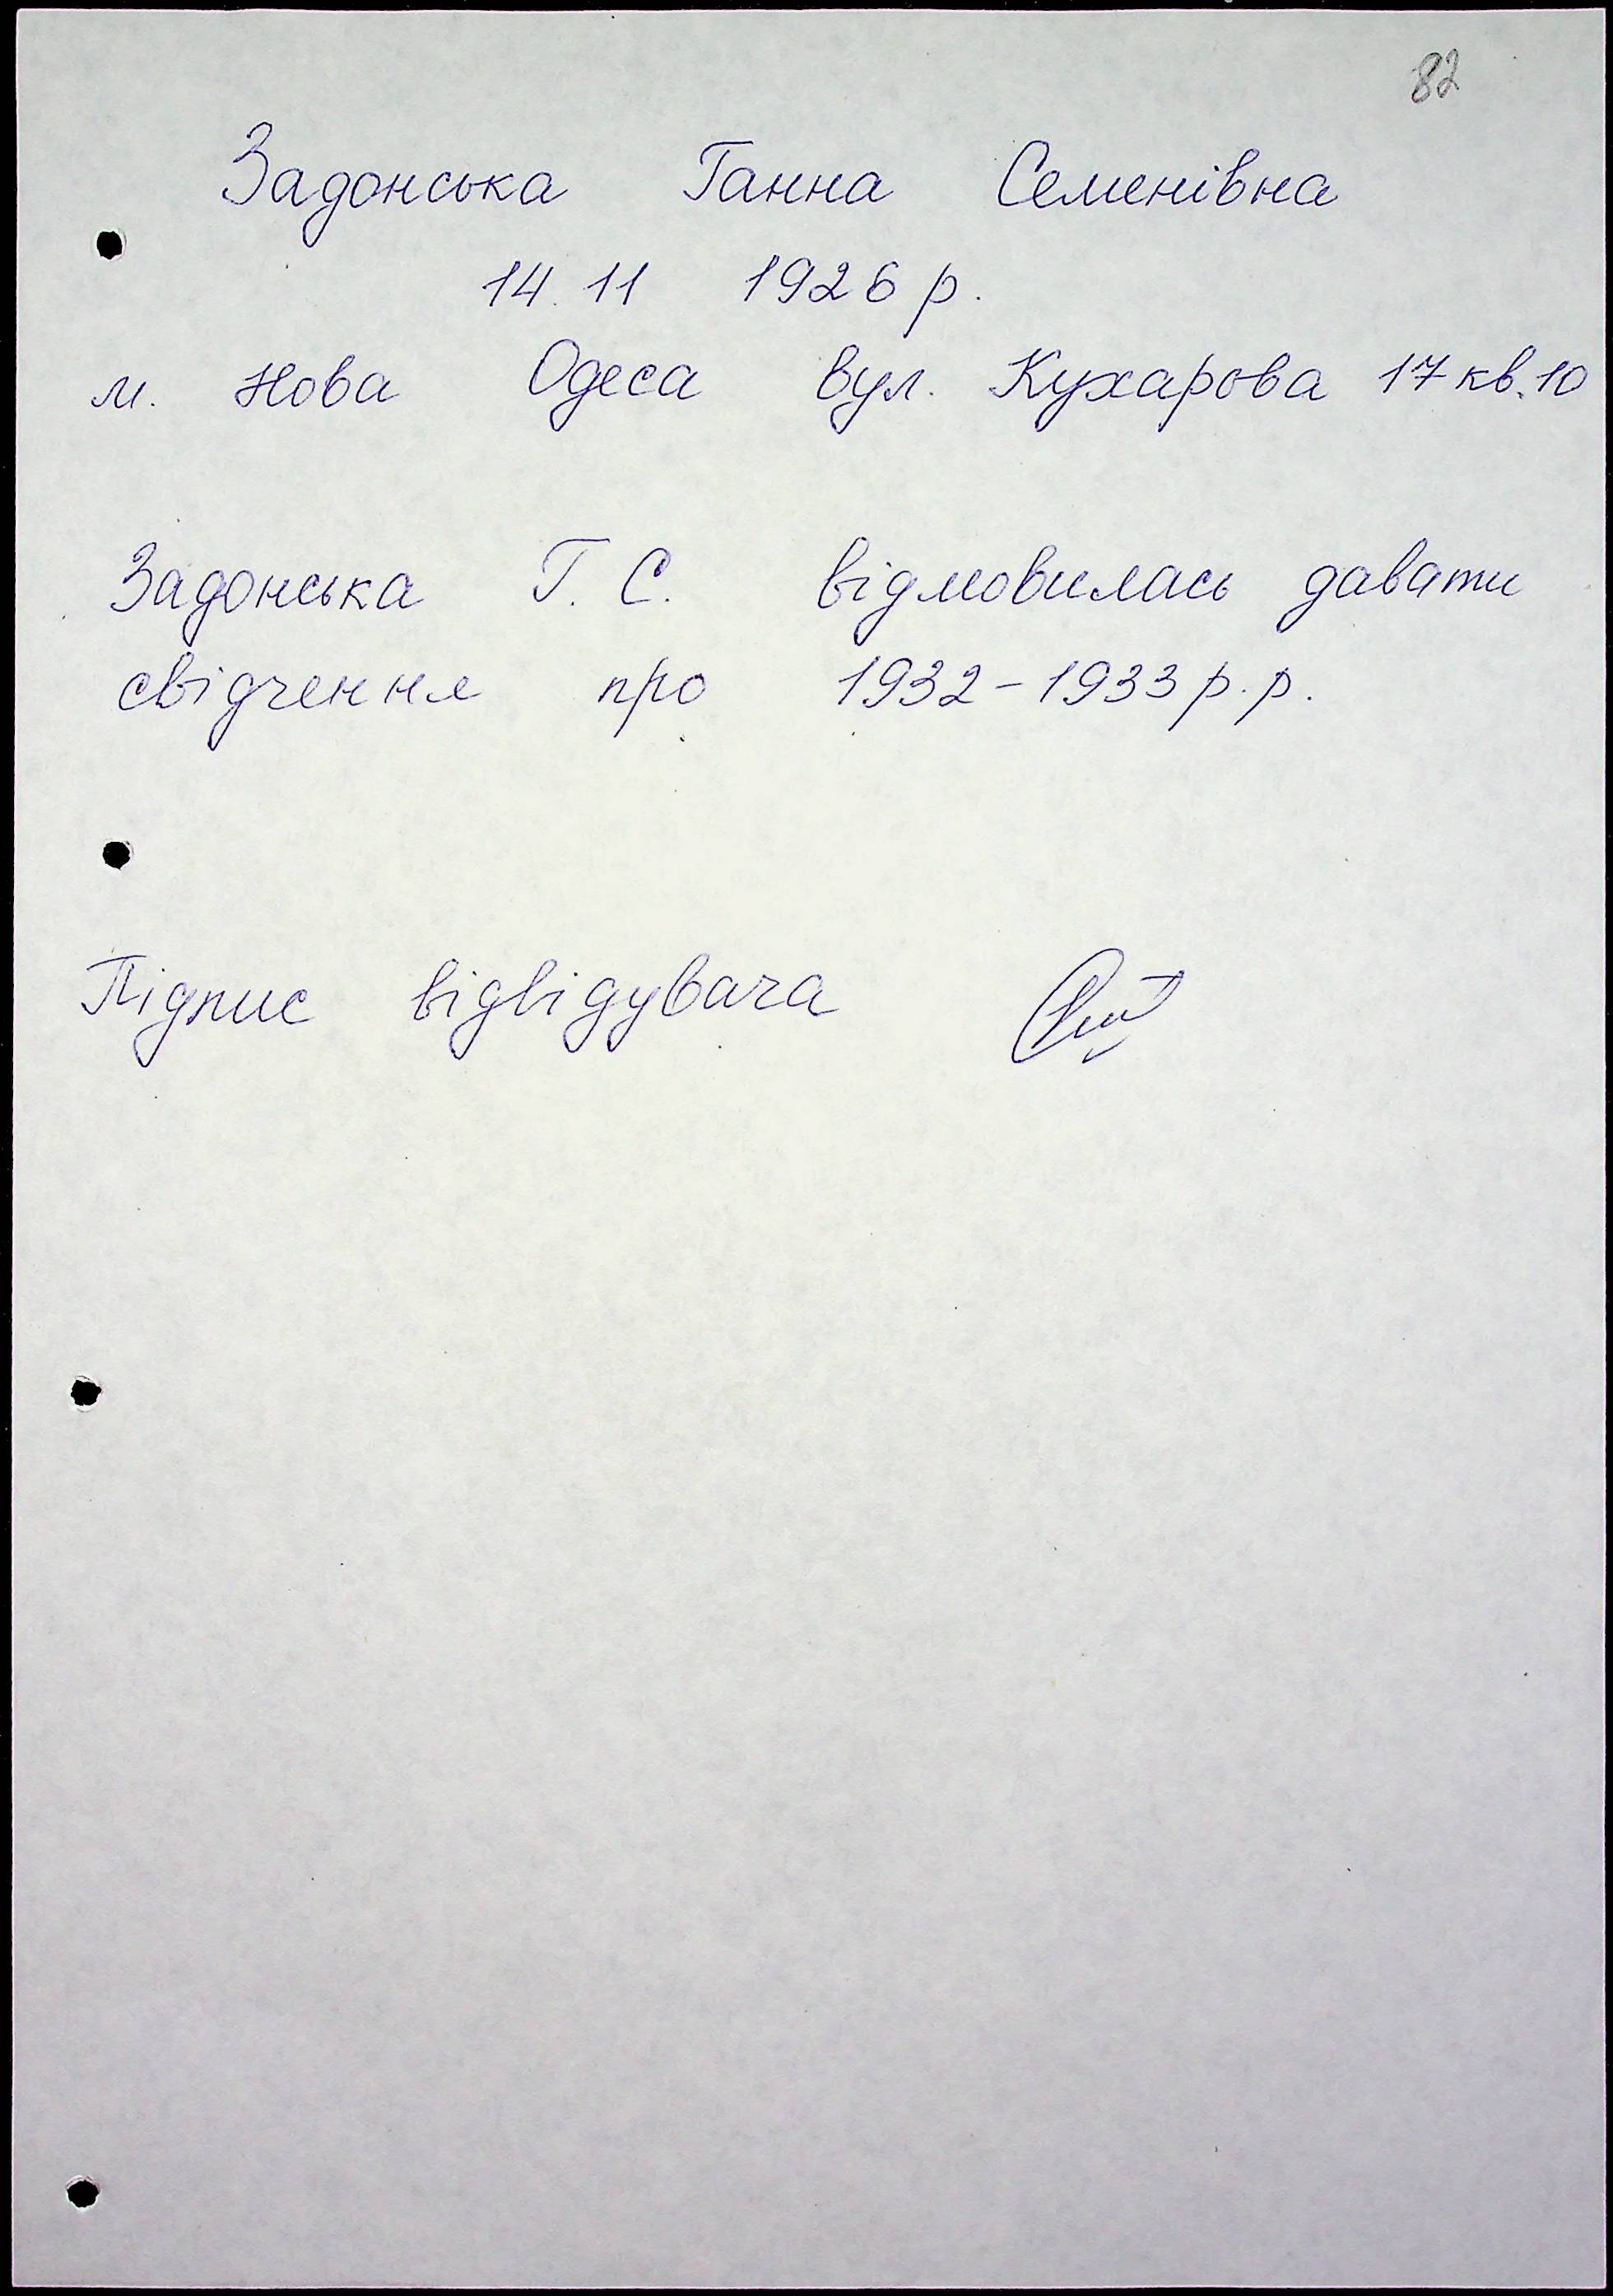 82
Задонська Ганна Семенівна
14.11 1926 р.
м. Нова Одеса вул. Кухарова 17 кв. 10
Задонська Г. С. відмовилась давати
свідчення про 1932-1933 р.р.
Підпис відвідувача